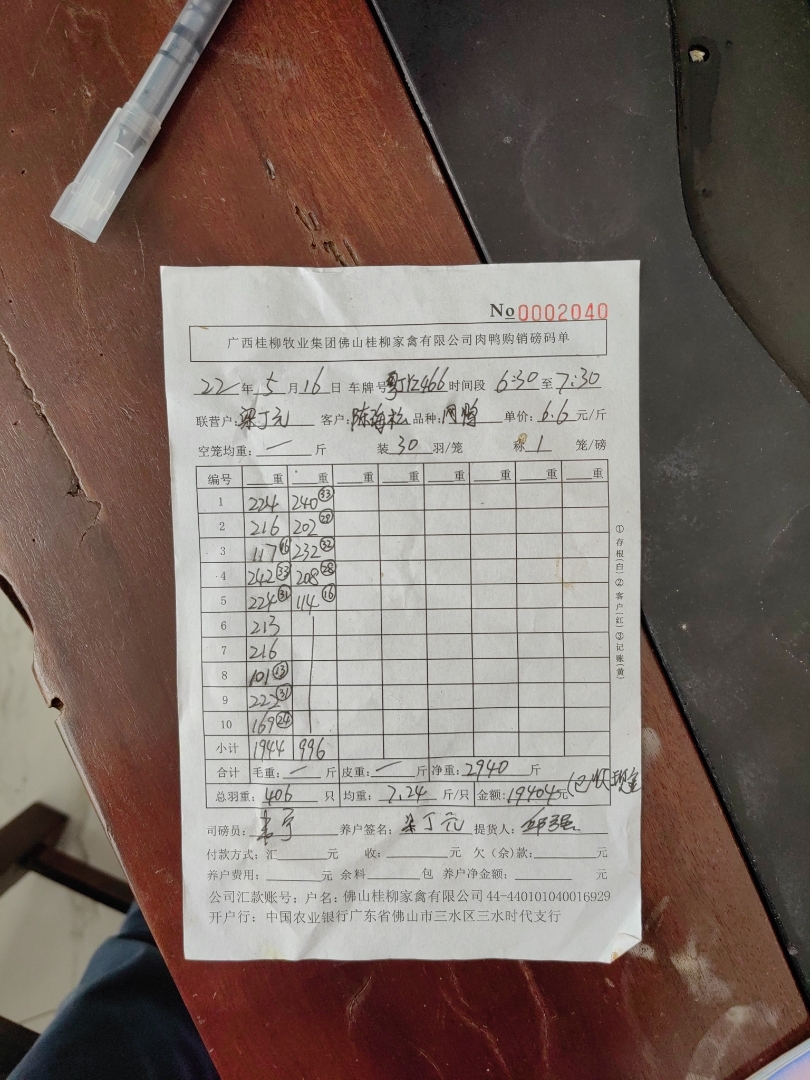 No 0002040
广西桂柳牧业集团佛山桂柳家禽有限公司肉鸭购销磅码单
22年5月16日 车牌号 466 时间段 6:30 至 7:30
联营户: 梁丁元 客户: 陈海松 品种: 单价: 6.6 元/斤
空笼均重: 一 斤 装 30 羽/笼 称 1 笼/磅
编号 重 重 重 重 重 重 重 重
1 224 240 ㉝
2 216 202 ㉘
3 117 ⑯ 232 ㉜
4 242 ㉝ 208 ㉘
5 224 ㉛ 114 ⑯
6 213
7 216
8 101 ⑬
9 222 ㉛
10 169 ㉔
小计 1944 996
合计 毛重: 一 斤 皮重: 一 斤 净重: 2940 斤
总羽重: 406 只 均重: 7.24 斤/只 金额: 19404 元 (已收现金
司磅员: 养户签名: 梁丁元 提货人: 邱强
付款方式: 汇 元 收: 元 欠(余)款: 元
养户费用: 元 余料 包 养户净金额: 元
公司汇款账号: 户名: 佛山桂柳家禽有限公司 44-440101040016929
开户行: 中国农业银行广东省佛山市三水区三水时代支行
①存根(白)②客户(红)③记账(黄)